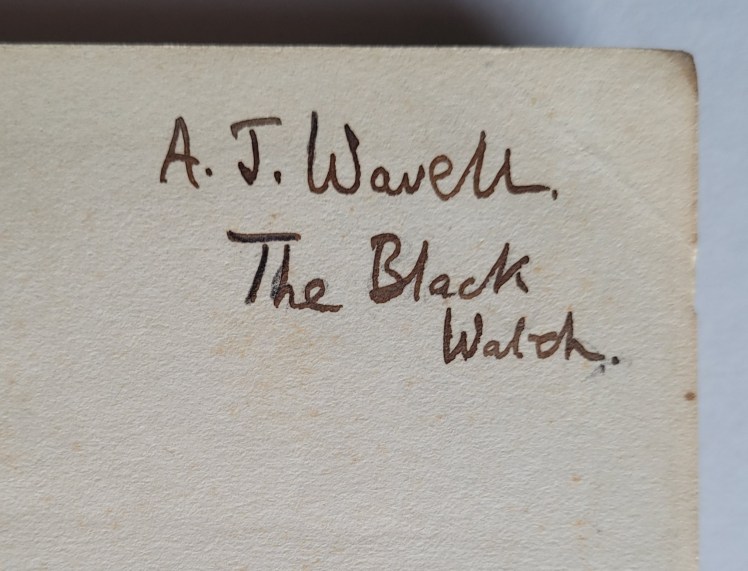 A. J. Wavell.
The Black
Watch.